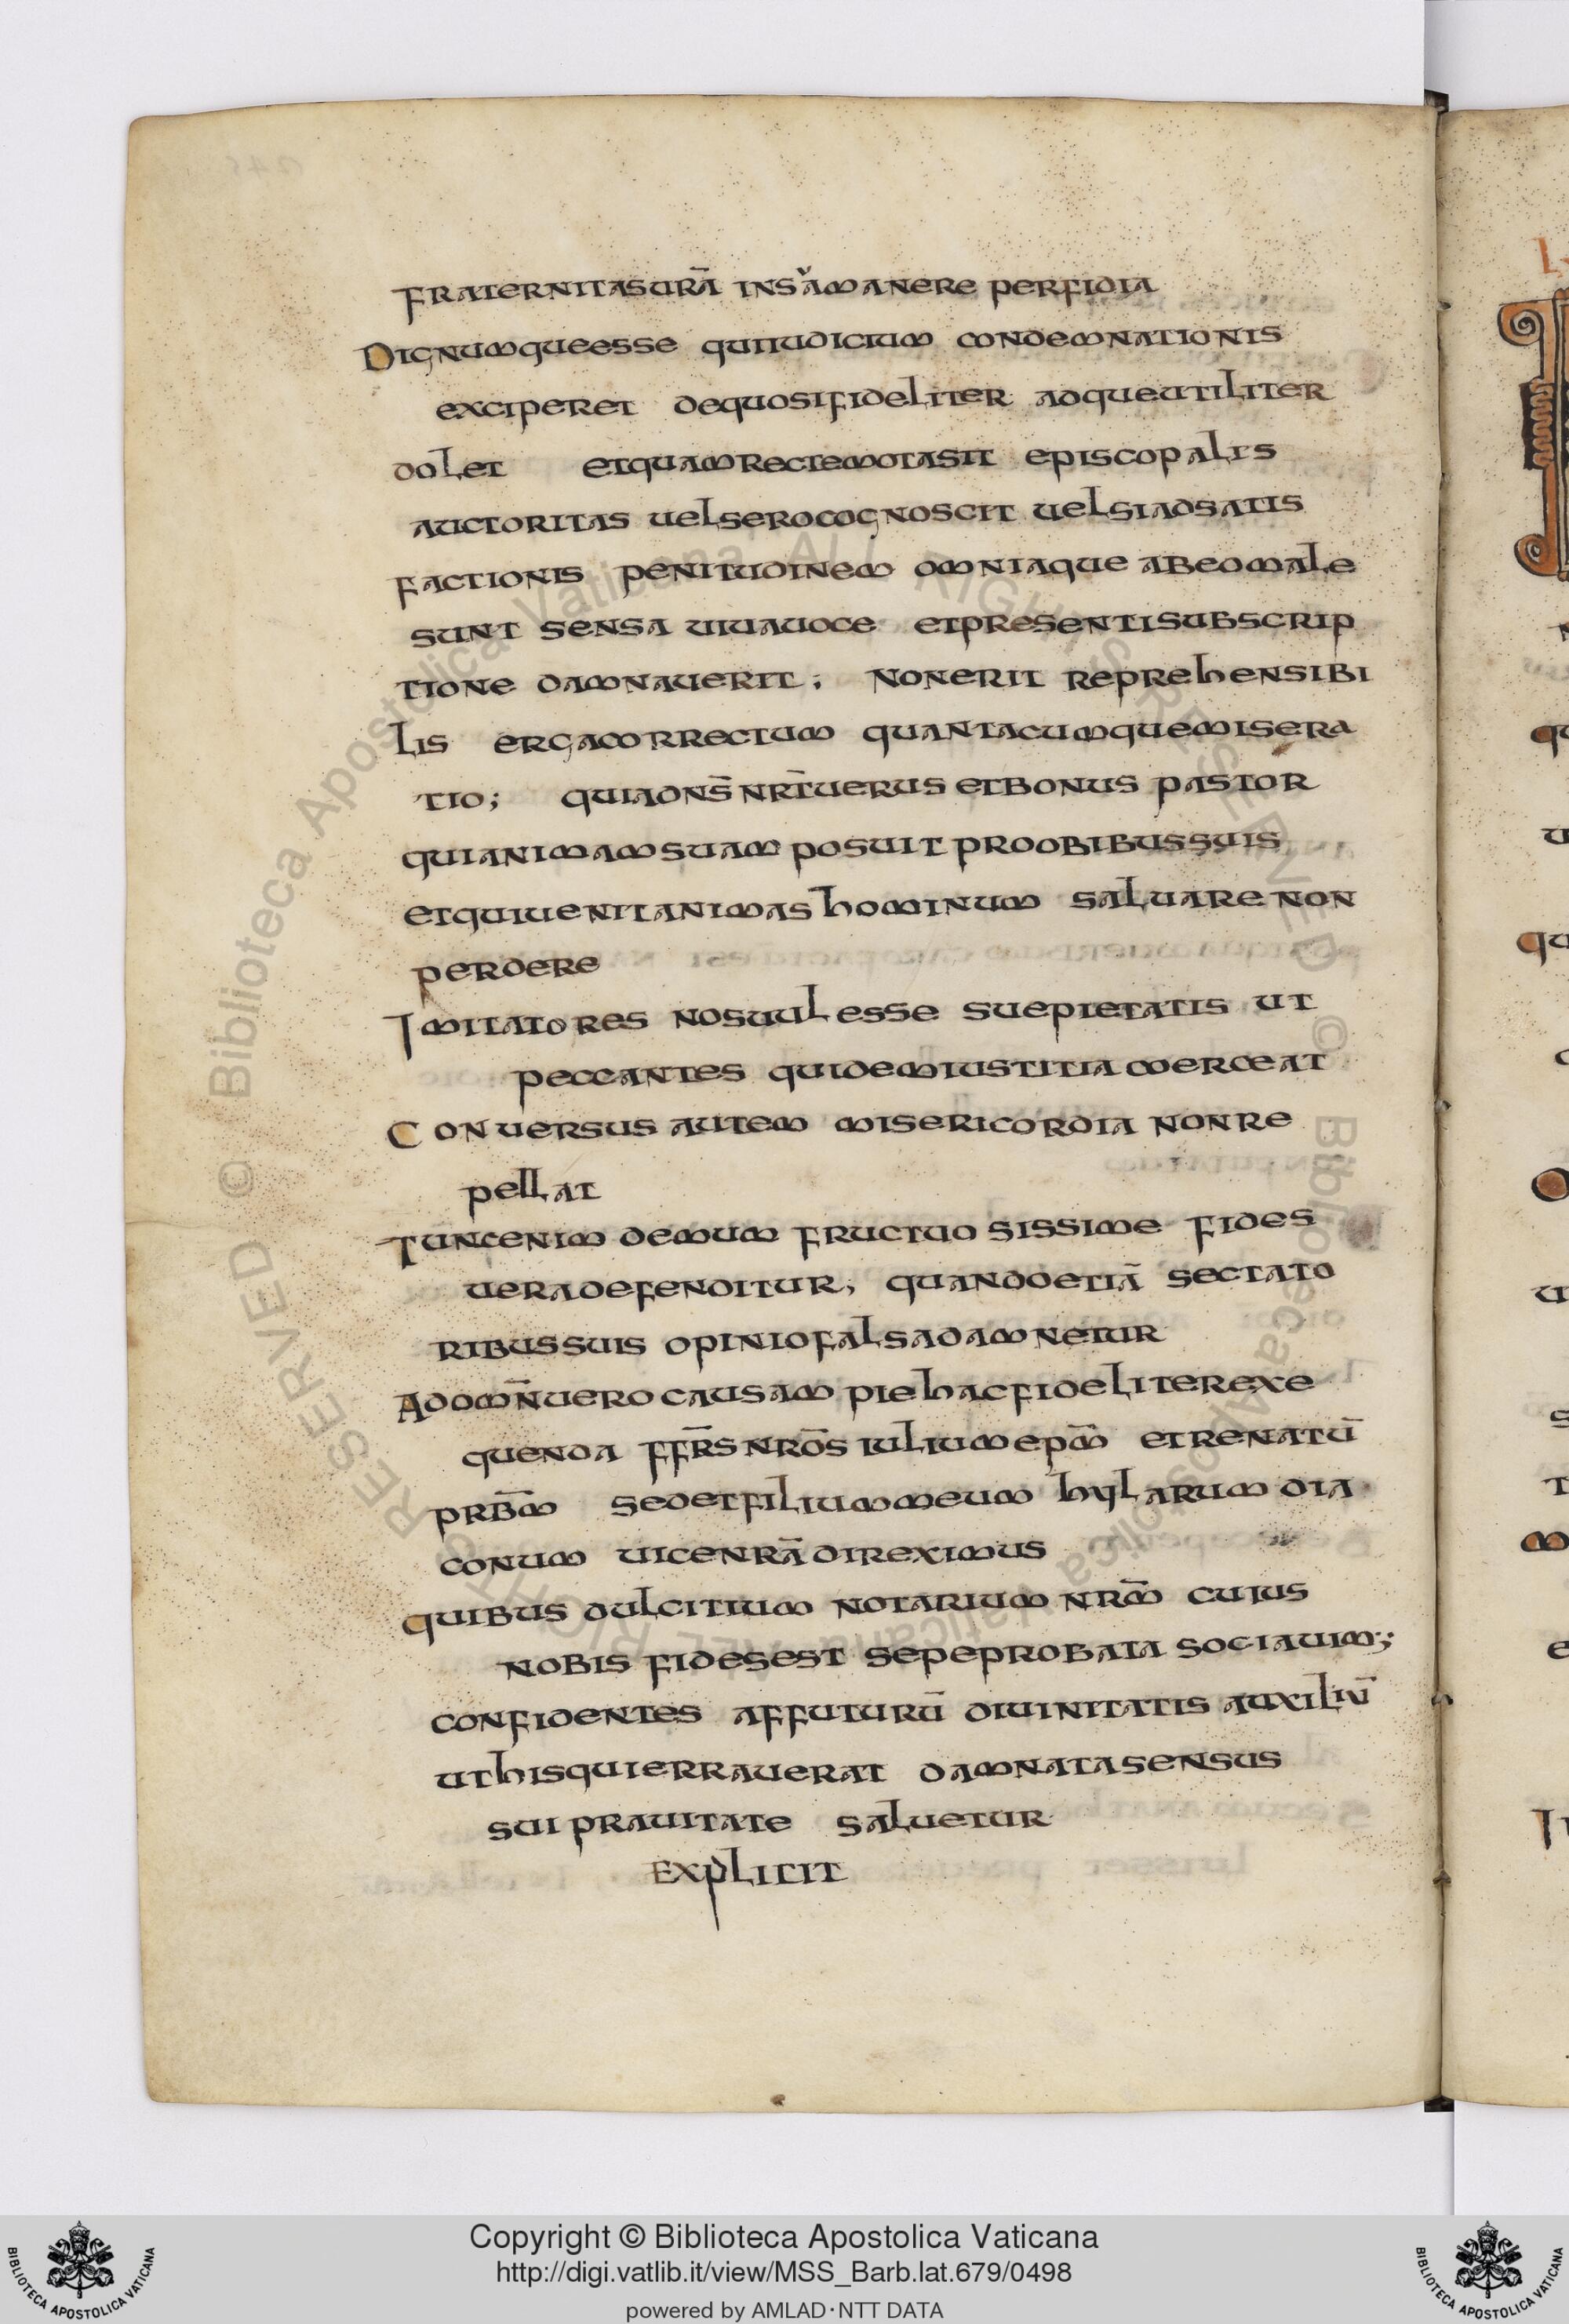 fraternitasurā insǎmanere perfidia
Dignumqueesse quiiudicium condemnationis
exciperet dequosifideliter adqueutiliter
dolet etquamrectemotasit episcopalis
auctoritas uelserocognoscit uelsiadsatis
factionis penitudinem omniaque abeomale
sunt sensa uiuauoce etpresentisubscrip
tione damnauerit; Nonerit reprehensibi
lis ergacorrectum quantacumquemisera
tio; quiadns̄ nrt̄uerus etbonus pastor
quianimamsuam posuit proobibussuis
etquiuenitanimashominum saluare non
perdere
Imitatores nosuulesse suepietatis ut
peccantes quidemiustitiacoerceat
Conuersus autem misericordia nonre
pellat
Tuncenim demum fructuosissime fides
ueradefenditur; quandoetiā sectato
ribussuis opiniofalsadamnetur
Adomn̄uerocausam piehacfideliterexe
quenda ffr̄s nrōs iuliumepm̄ etrenatū
prbm̄ sedetfiliummeum hylarum dia
conum uicenrādireximus
quibus dulcitium notarium nrm̄ cuius
nobis fidesest sepeprobata sociauim;
confidentes affuturū diuinitatis auxiliū
uthisquierrauerat damnatasensus
suiprauitate saluetur
Explicit
Copyright © Biblioteca Apostolica Vaticana
http://digi.vatlib.it/view/MSS_Barb.lat.679/0498
powered by AMLAD·NTT DATA